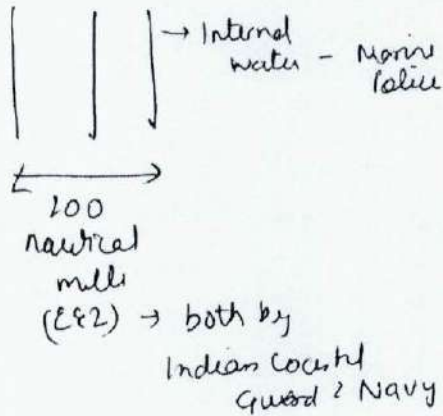 → Internal
water - Marine
Police
200
nautical
mile
(EEZ) → both by
Indian Coastal
Guard & Navy